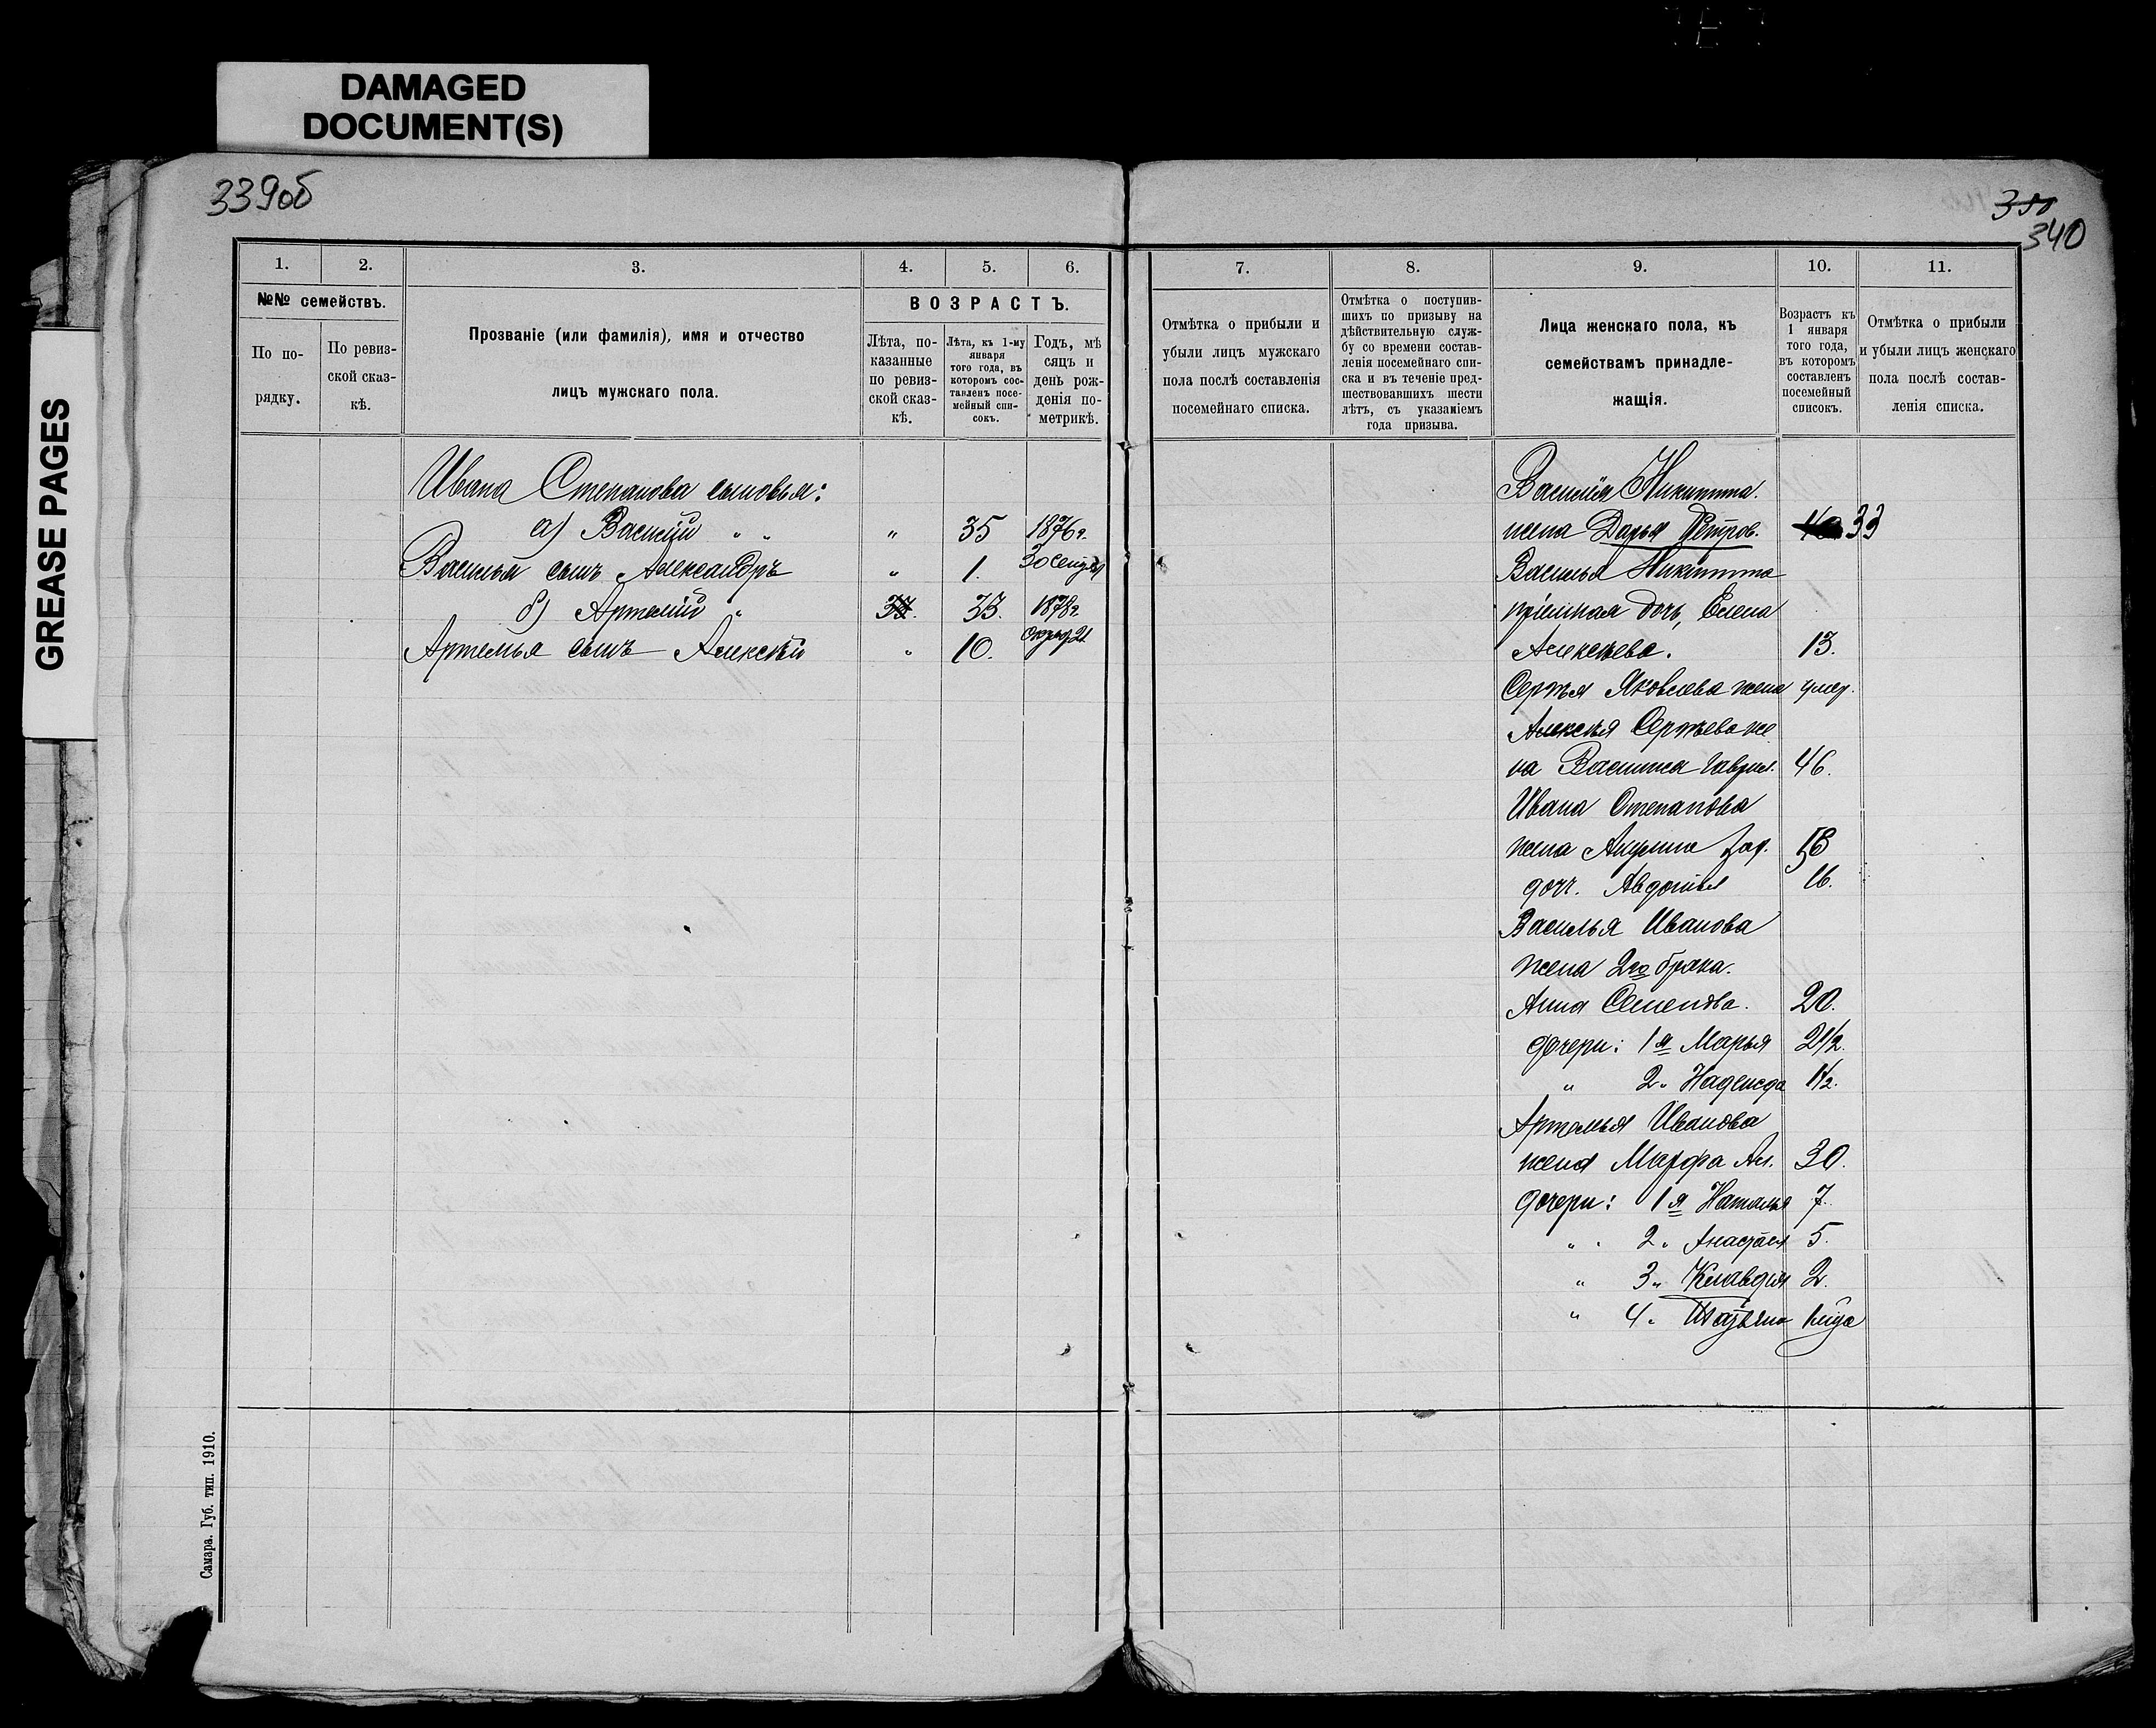 DAMAGED
DOCUMENT(S)
GREASE PAGES
339об
350
340
1.
2.
3.
4.
5.
6.
№№ семействъ.
ВОЗРАСТЪ.
По по-
рядку.
По ревиз-
ской сказ-
кѣ.
Прозваніе (или фамилія), имя и отчество
лицъ мужскаго пола.
Лѣта, по-
казанные
по ревиз-
ской сказ-
кѣ.
Лѣта, къ 1-му
января
того года, въ
которомъ сос-
тавленъ посе-
мейный спи-
сокъ.
Годъ, мѣ
сяцъ и
день рож-
денія по-
метрикѣ.
Ивана Степанова сыновья:
а) Василій " " " 35 1876г.
Василья сынъ Александръ " 1. 30
б) Артемій " 33. 1878г.
Артемья сынъ Алексѣй " 10. 21
Самара. Губ. тип. 1910.
7.
8.
9.
10.
11.
Отмѣтка о прибыли и
убыли лицъ мужскаго
пола послѣ составленія
посемейнаго списка.
Отмѣтка о поступив-
шихъ по призыву на
дѣйствительную служ-
бу со времени состав-
ленія посемейнаго спи-
ска и въ теченіе пред-
шествовавшихъ шести
лѣтъ, съ указаніемъ
года призыва.
Лица женскаго пола, къ
семействамъ принадле-
жащія.
Возрастъ къ
1 января
того года,
въ которомъ
составленъ
посемейный
списокъ.
Отмѣтка о прибыли
и убыли лицъ женскаго
пола послѣ состав-
ленія списка.
Василія Никитина.
жена Дарья Петров. 33
Василья Никитина
пріемная дочь, Елена
Алексѣева. 13.
Сергѣя Яковлева жена умер.
Алексѣя Сергѣева же
на Васили­са Гаврил. 46.
Ивана Степанова
жена Акулина
доч. Авдотья 16.
Василья Иванова
жена 2го брака.
Анна Семенова. 20.
дочери: 1я Марья 2 1/2.
" 2" Надежда 1/2.
Артемья Иванова
жена Марфа Ал. 30.
дочери: 1я Наталья 7.
" " 2" Анастасія 5.
" 3" Клавдія 2.
" 4" Татьяна 1 мѣся